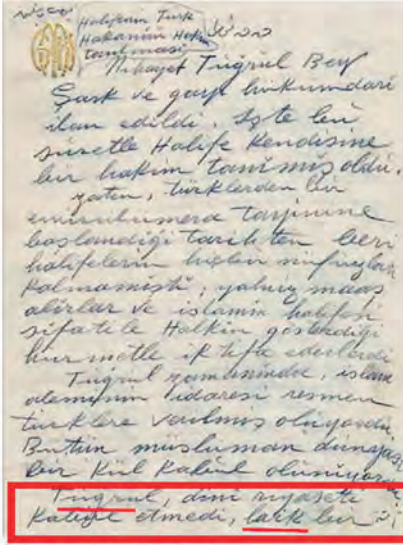 Halifenin Türk
Hakanını Hakim
tanıması
Nihayet Tuğrul Bey
Şark ve garp hükümdarı
ilan edildi. İşte bu
suretle Halife Kendisine
bir hakim tanımış oldu.
zaten, türklerden bir
emirülümera tayinine
başlandığı tarihten beri
halifelerin hiçbir nüfuzları
Kalmamıştı; yalnız maaş
alırlar ve islamın halifesi
sıfatile Halkın gösterdiği
hürmetle iktifa ederlerdi
Tuğrul zamanında, islam
aleminin idaresi resmen
türklere verilmiş oluyordu.
Bütün müslüman dünyası
bir Kül Kabul olunuyordu
Tuğrul, dini riyaseti
Kabul etmedi, laik bir